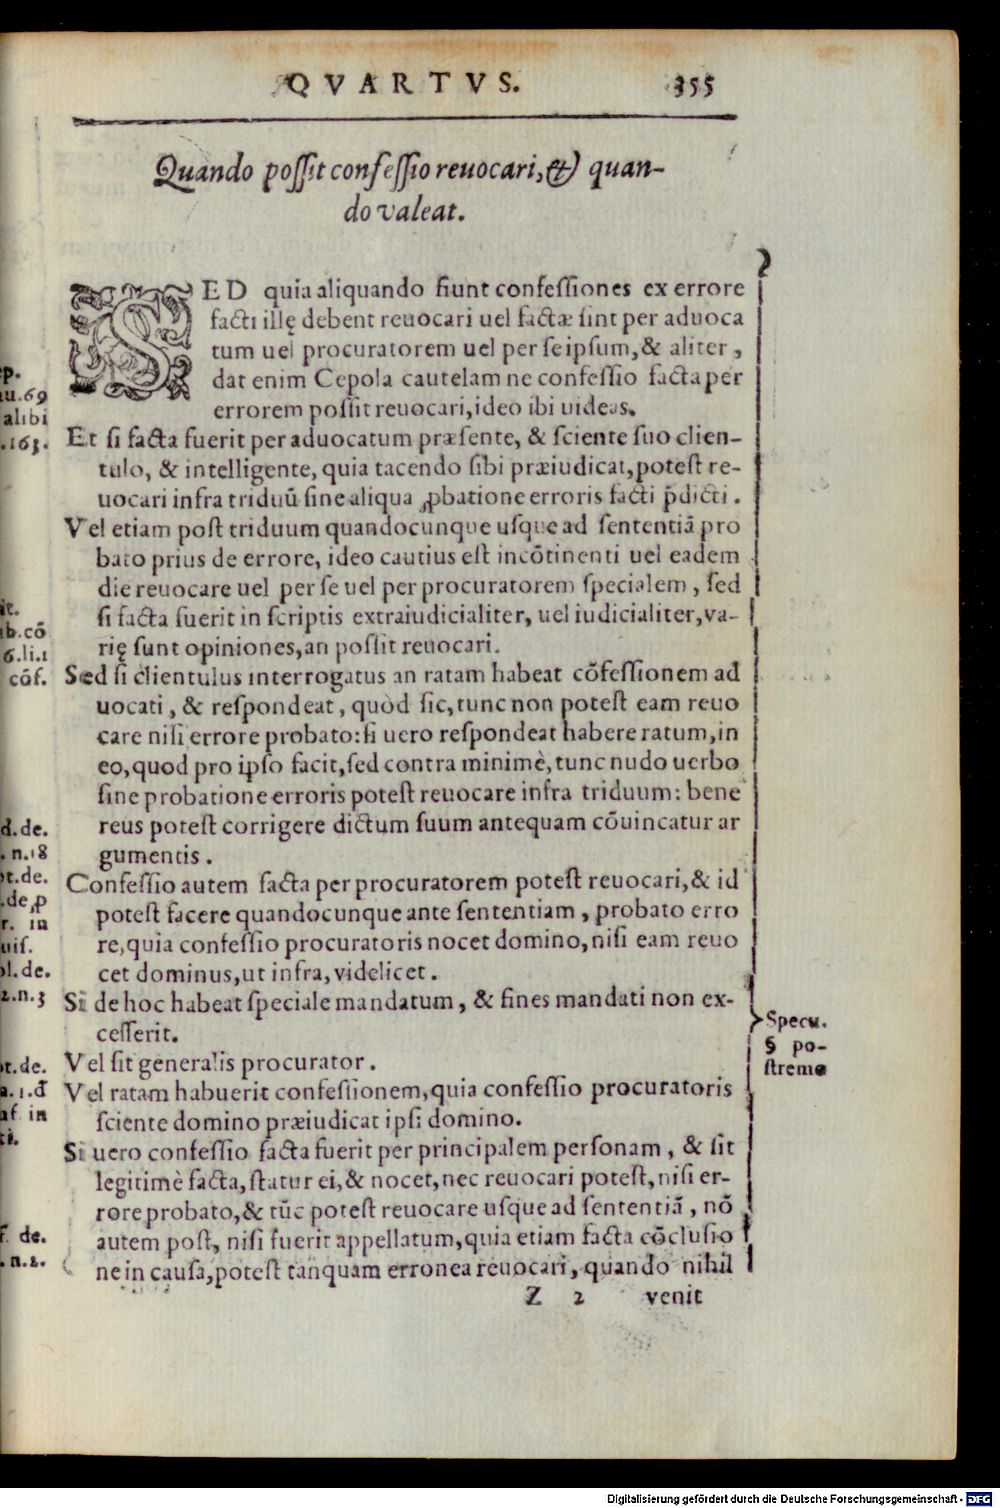 QVARTVS. 355
Quando possit confessio reuocari, & quan-
do valeat.
SED quia aliquando fiunt confessiones ex errore
facti illę debent reuocari uel factæ sint per aduoca
tum uel procuratorem uel per seipsum, & aliter,
dat enim Cepola cautelam ne confessio facta per
errorem possit reuocari, ideo ibi uideas.
Et si facta fuerit per aduocatum præsente, & sciente suo clien-
tulo, & intelligente, quia tacendo sibi præiudicat, potest re-
uocari infra triduū sine aliqua ꝓbatione erroris facti p̄dicti.
Vel etiam post triduum quandocunque usque ad sententiā pro
bato prius de errore, ideo cautius est incōtinenti uel eadem
die reuocare uel per se uel per procuratorem specialem, sed
si facta fuerit in scriptis extraiudicialiter, uel iudicialiter, va-
rię sunt opiniones, an possit reuocari.
Sed si clientulus interrogatus an ratam habeat cōfessionem ad
uocati, & respondeat, quòd sic, tunc non potest eam reuo
care nisi errore probato: si uero respondeat habere ratum, in
eo, quod pro ipso facit, sed contra minimè, tunc nudo uerbo
sine probatione erroris potest reuocare infra triduum: bene
reus potest corrigere dictum suum antequam cōuincatur ar
gumentis.
Confessio autem facta per procuratorem potest reuocari, & id
potest facere quandocunque ante sententiam, probato erro
re, quia confessio procuratoris nocet domino, nisi eam reuo
cet dominus, ut infra, videlicet.
Si de hoc habeat speciale mandatum, & fines mandati non ex-
cesserit.
Vel sit generalis procurator.
Vel ratam habuerit confessionem, quia confessio procuratoris
sciente domino præiudicat ipsi domino.
Si uero confessio facta fuerit per principalem personam, & sit
legitimè facta, statur ei, & nocet, nec reuocari potest, nisi er-
rore probato, & tūc potest reuocare usque ad sententiā, nō
autem post, nisi fuerit appellatum, quia etiam facta cōclusio
ne in causa, potest tanquam erronea reuocari, quando nihil
Z 2 venit
Specu.
§ po-
stremo
alibi
.163.
6.li.1
cōf.
d.de.
.n.18
in
2.n.3
in
de.
.n.2.
Digitalisierung gefördert durch die Deutsche Forschungsgemeinschaft - DFG